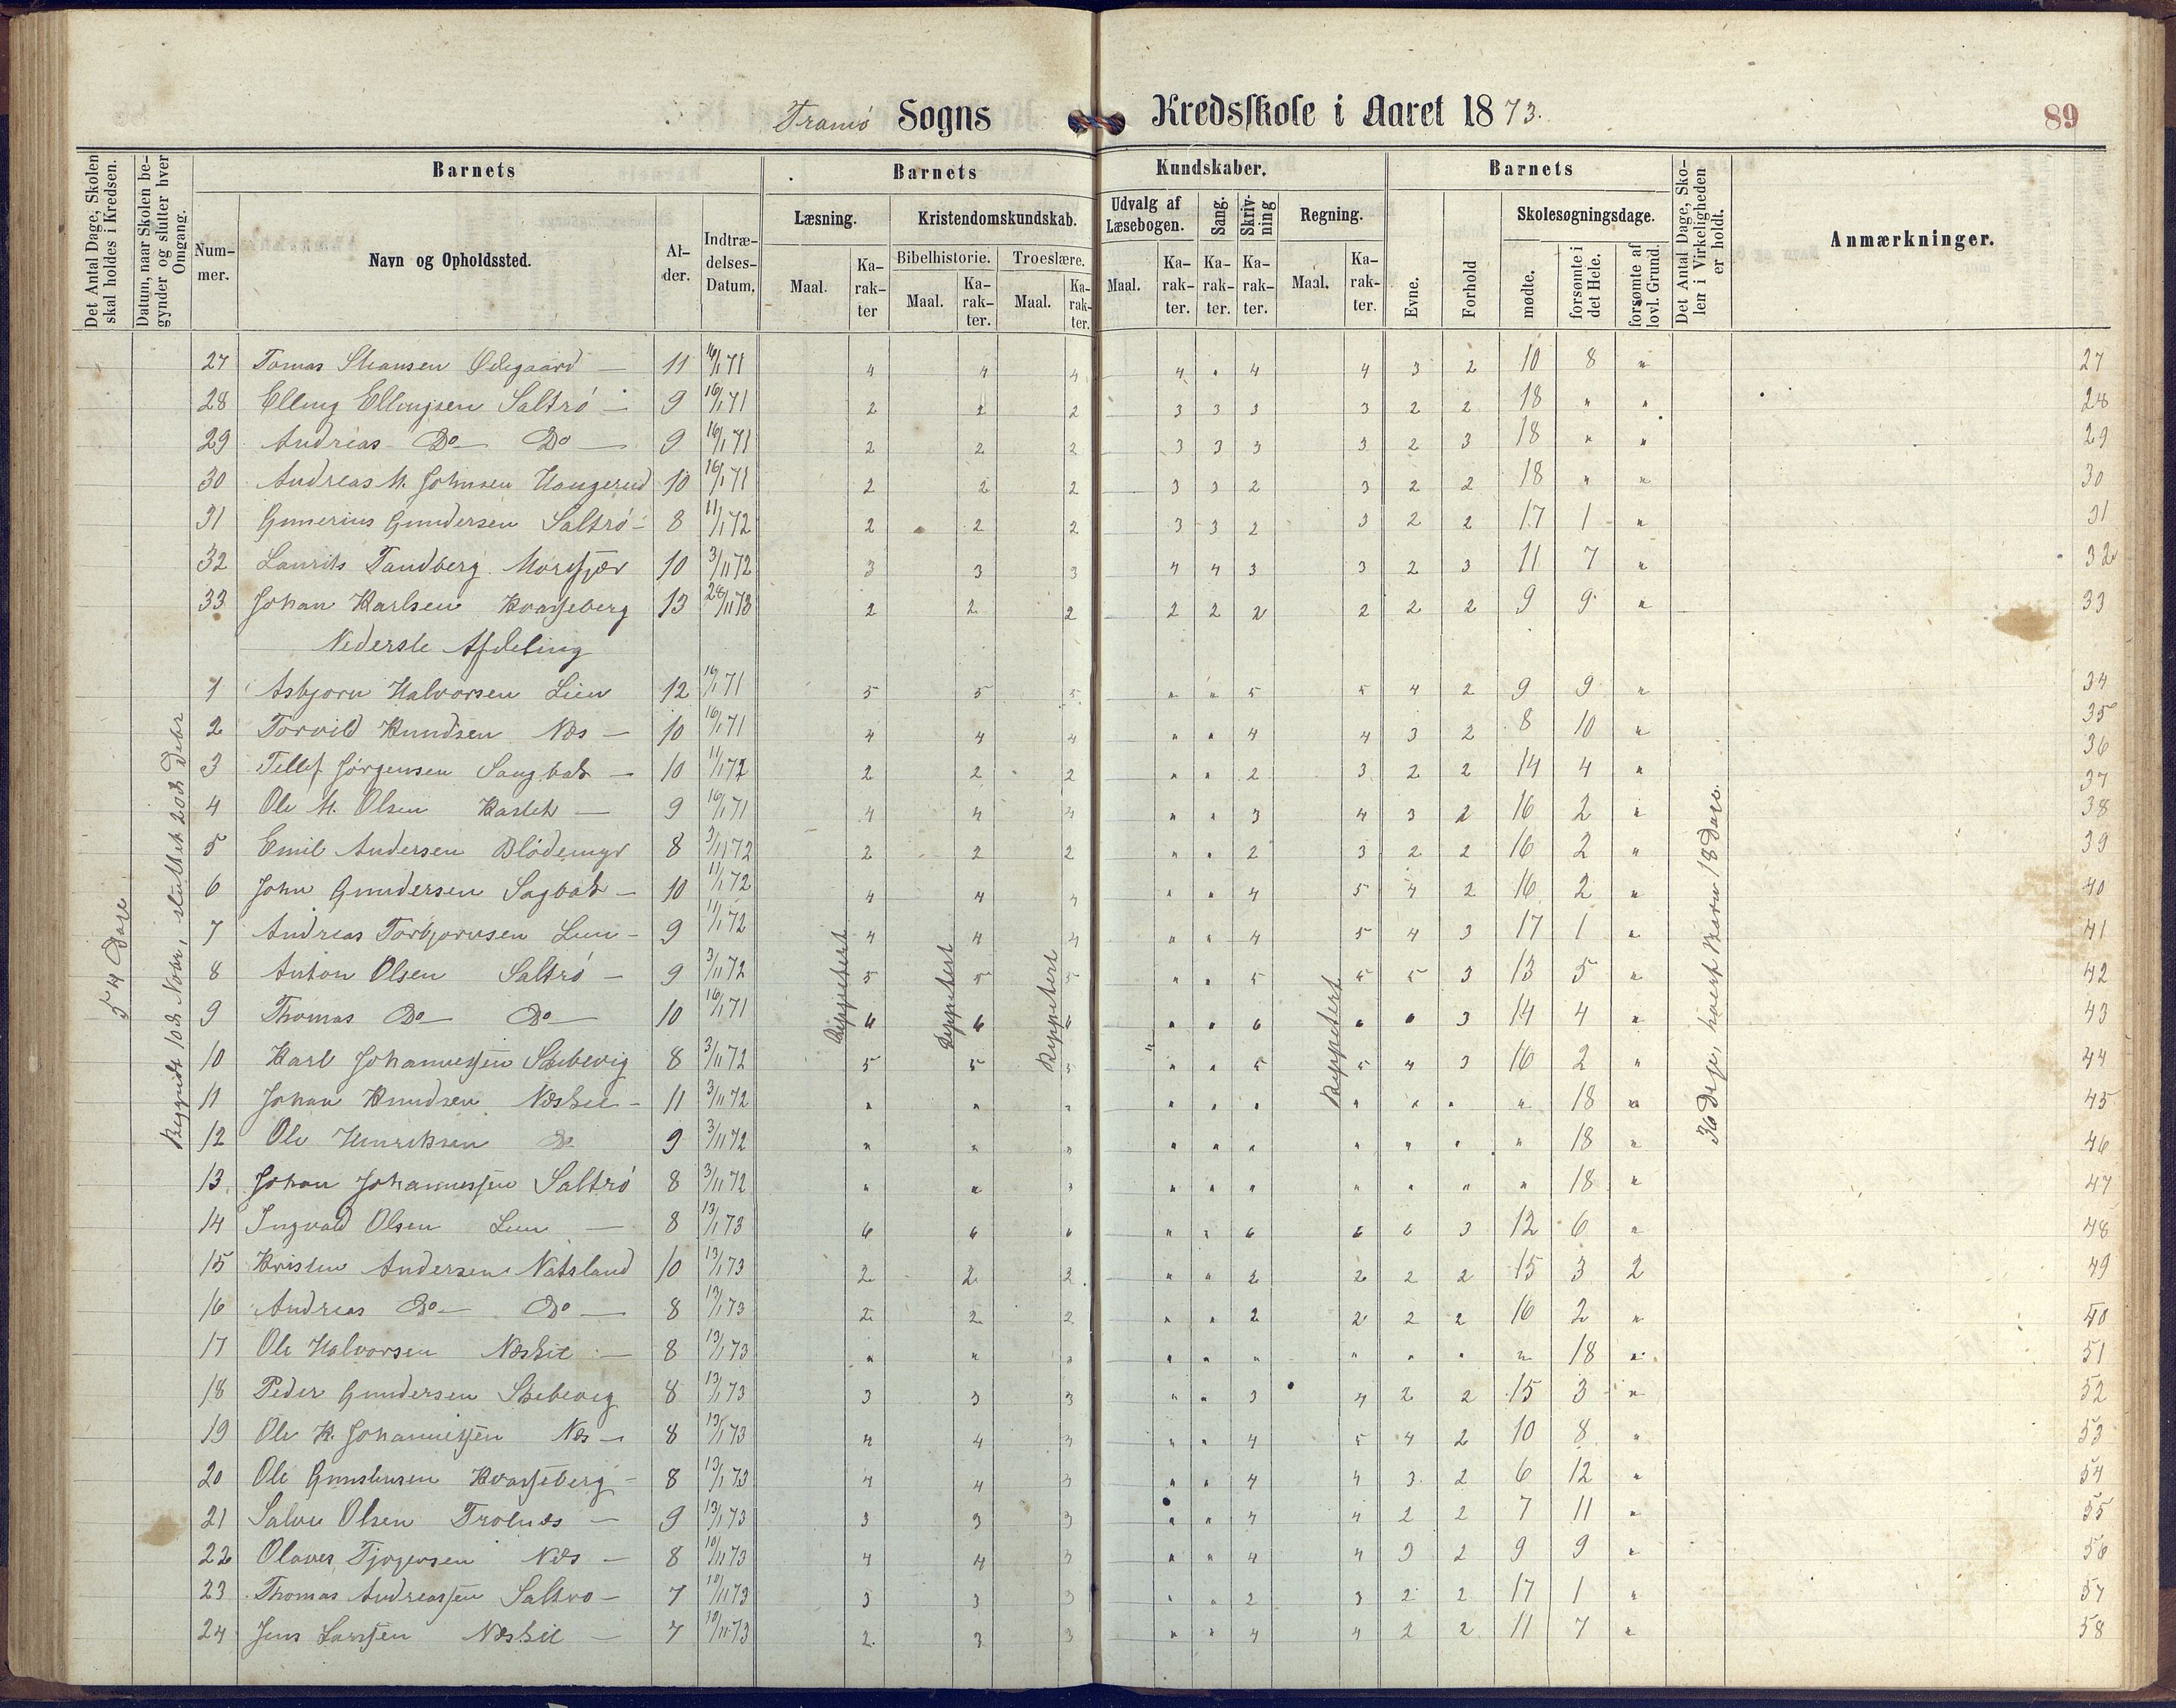 Tromö Sogns Kredsskole i Aaret 1873.
89
Det Antal Dage, Skolen skal holdes i Kredsen.
Datum, naar Skolen begynder og slutter hver Omgang.
Barnets
Nummer.
Navn og Opholdssted.
Alder.
Indtrædelses-Datum.
Barnets Kundskaber.
Læsning.
Maal.
Karakter
Kristendomskundskab.
Bibelhistorie.
Maal.
Karakter.
Troeslære.
Maal.
Karakter.
Udvalg af Læsebogen.
Maal.
Karakter.
Sang.
Karakter.
Skrivning
Karakter.
Regning.
Maal.
Karakter.
Barnets
Evne.
Forhold
Skolesøgningsdage.
mødte.
forsømte i det Hele.
forsømte af lovl. Grund.
Det Antal Dage, Skolen i Virkeligheden er holdt.
Anmærkninger.
27 Tomas Ødegaard — 11 16/1 71 4 4 4 4 " 4 4 3 2 10 8 " 27
28 Elling Ellingsen Saltrö — 9 16/1 71 2 2 2 3 3 3 3 2 2 18 " " 28
29 Andreas Do Do — 9 16/1 71 2 2 2 3 3 3 3 2 3 18 " " 29
30 Andreas M. Johnsen Haugerud 10 16/1 71 2 2 2 3 3 2 3 2 2 18 " " 30
31 Gunerius Gundersen Saltrö — 8 11/1 72 2 2 2 3 3 2 3 2 2 17 1 " 31
32 Laurits Tandberg Morfjær 10 3/11 72 3 3 3 4 4 3 3 2 3 11 7 " 32
33 Johan Karlsen Kvasseberg 13 2 2 2 2 2 2 2 2 2 9 9 " 33
Nederste Afdeling
1 Asbjorn Halvorsen Lien 12 16/1 71 5 5 5 " " 5 5 4 2 9 9 " 34
2 Torvild Knudsen Næs — 10 16/1 71 4 4 4 " " 4 4 3 2 8 10 " 35
36
3 Tellef Jörgensen Saugbak — 10 11/1 72 2 2 2 " " 2 3 2 2 14 4 " 37
4 Ole M. Olsen — 9 16/1 71 4 4 4 " " 3 4 3 2 16 2 " 38
5 Emil Andersen Blödemyr 8 3/11 72 2 2 2 " " 2 3 2 2 16 2 " 39
6 John Gundersen Sagbak — 10 11/1 72 4 4 4 " " 4 5 4 2 16 2 " 40
7 Andreas Torbjornsen Lien — 9 11/1 72 4 4 4 " " 4 5 4 3 17 1 " 41
8 Anton Olsen Saltrö — 9 3/11 72 5 5 5 " " 5 5 5 3 13 5 " 42
9 Thomas Do Do — 10 16/1 71 6 6 6 " " 6 6 6 3 14 4 " 43
10 Karl Johannessen Skibevig 8 3/11 72 5 5 5 " " 5 5 4 3 16 2 " 44
11 Johan Knudsen Næskil — 11 3/11 72 " " " " " " " " " " 18 " 45
12 Ole Henriksen Do 9 3/11 72 " " " " " " " " " " 18 " 46
13 Johan Johannessen Saltrö 8 3/11 72 " " " " " " " " " " 18 " 47
14 Ingvald Olsen Lien — 8 13/1 73 6 6 6 " " 6 6 6 3 12 6 " 48
15 Kristen Andersen Natsland 10 13/1 73 2 2 2 " " 2 2 2 2 15 3 2 49
16 Andreas Do Do — 8 13/1 73 2 2 2 " " 2 2 2 2 16 2 " 50
17 Ole Halvorsen Næskil — 8 13/1 73 " " " " " " " " " " 18 " 51
18 Peder Gundersen Skibevig 8 13/1 73 3 3 3 " " 3 4 2 2 15 3 " 52
19 Ole K. Johannessen Næs — 8 13/1 73 4 4 3 " " 4 5 4 2 10 8 " 53
20 Ole Kvasseberg — 8 13/1 73 4 4 3 " " 4 4 3 2 6 12 " 54
21 Salve Olsen Trolnæs — 9 13/1 73 3 3 3 " " 4 4 2 2 7 11 " 55
22 Olaves Næs — 8 10/11 73 4 4 3 " " 4 4 3 2 9 9 " 56
23 Thomas Andreassen Saltro — 7 10/11 73 3 3 3 " " 2 3 2 2 17 1 " 57
24 Jens Larssen Næskil — 7 10/11 73 2 3 3 " " 4 4 2 2 11 7 " 58
54 Dage
Begyndt 10de Novbr, sluttet 20de Debr
Reppetert
Reppetert
Reppetert
Reppetert
36 Dage, hvert Barn 18 Dage.